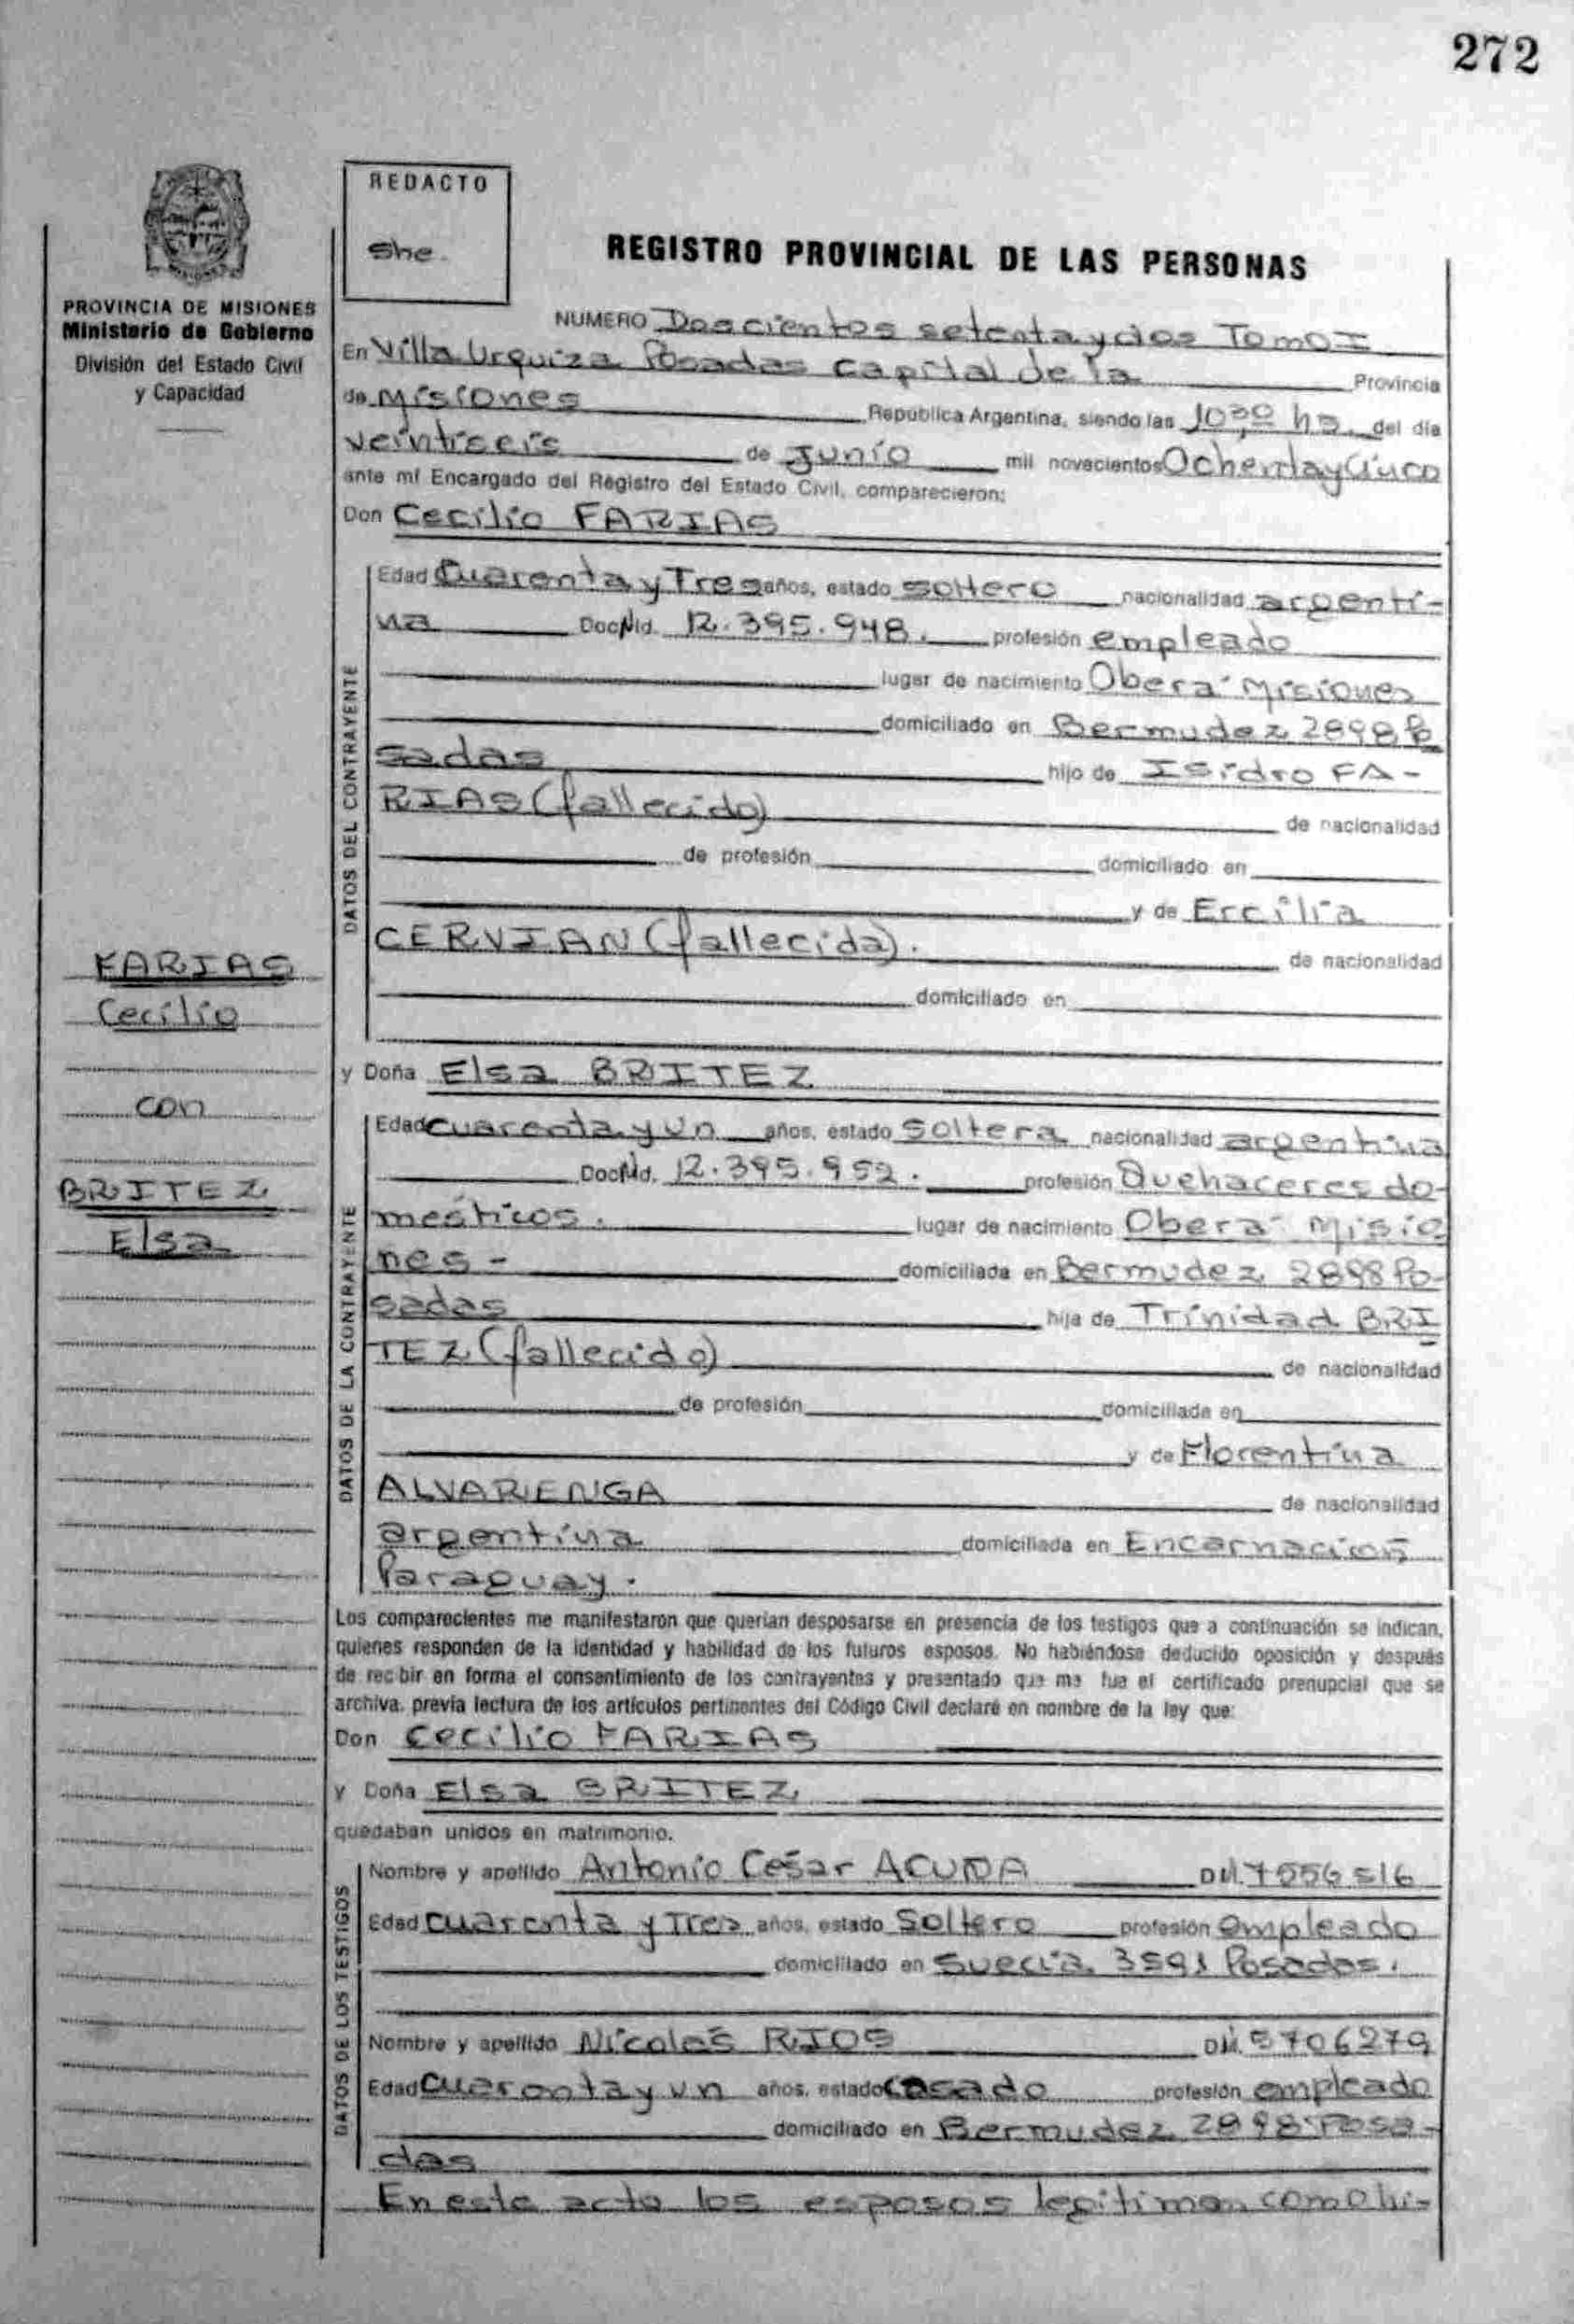 272
REDACTO
She.
PROVINCIA DE MISIONES
Ministerio de Gobierno
División del Estado Civil
y Capacidad
REGISTRO PROVINCIAL DE LAS PERSONAS
NUMERO Doscientos setenta y dos Tomo I
En Villa Urquiza Posadas Capital de la Provincia
de Misiones República Argentina, siendo las 10,30 hs. del día
veintiseis de Junio mil novecientos Ochenta y Cinco
ante mí Encargado del Registro del Estado Civil, comparecieron:
Don Cecilio FARIAS
DATOS DEL CONTRAYENTE
Edad Cuarenta y Tres años, estado soltero nacionalidad argenti-
na Doc Nid. 12.395.948. profesión empleado
lugar de nacimiento Oberá Misiones
domiciliado en Bermudez 2898 Po
sadas hijo de Isidro FA-
RIAS (fallecido) de nacionalidad
de profesión domiciliado en
y de Ercilia
CERVIAN (fallecida). de nacionalidad
domiciliado en
FARIAS
Cecilio
con
BRITEZ
Elsa
y Doña Elsa BRITEZ
DATOS DE LA CONTRAYENTE
Edad cuarenta y un años, estado soltera nacionalidad argentina
Doc Nid. 12.395.952. profesión Quehaceres do-
mésticos. lugar de nacimiento Oberá Misio
nes - domiciliada en Bermudez 2898 Po-
sadas hija de Trinidad BRI
TEZ (fallecido) de nacionalidad
de profesión domiciliada en
y de Florentina
ALVARENGA de nacionalidad
argentina domiciliada en Encarnación
Paraguay.
Los comparecientes me manifestaron que querían desposarse en presencia de los testigos que a continuación se indican,
quienes responden de la identidad y habilidad de los futuros esposos. No habiéndose deducido oposición y después
de recibir en forma el consentimiento de los contrayentes y presentado que me fue el certificado prenupcial que se
archiva, previa lectura de los artículos pertinentes del Código Civil declaré en nombre de la ley que:
Don Cecilio FARIAS
y Doña Elsa BRITEZ
quedaban unidos en matrimonio.
DATOS DE LOS TESTIGOS
Nombre y apellido Antonio César ACUÑA DM. 7556516
Edad cuarenta y Tres años, estado Soltero profesión empleado
domiciliado en Suecia 3591 Posadas.
Nombre y apellido Nicolás RIOS DM. 5706279
Edad cuarenta y un años, estado casado profesión empleado
domiciliado en Bermudez 2898 Posa-
das
En este acto los esposos legitiman como hi-